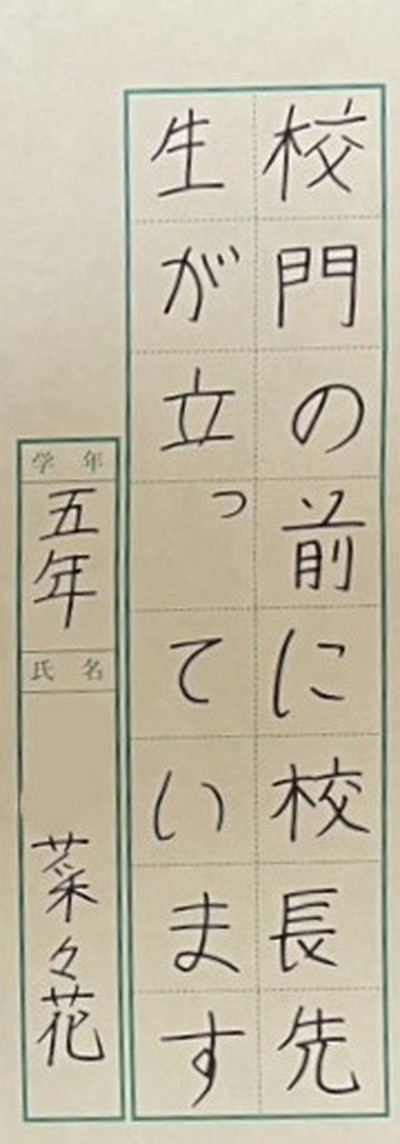 校門の前に校長先
生が立っています
学年
五年
氏名
菜々花